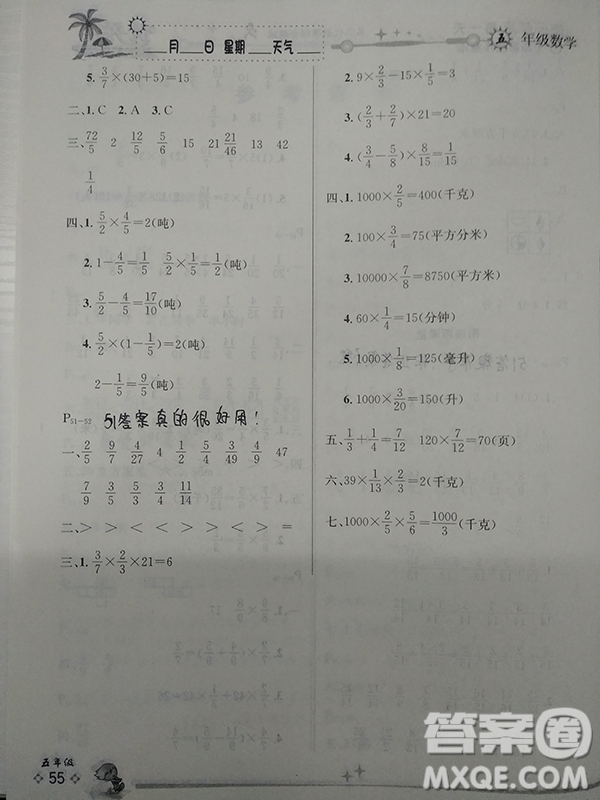 月 日 星期 天气
五 年级数学
5. 3/7×(30+5)=15
二、1. C 2. A 3. C
三、72/5 2 12/5 5/6 15 21 21/46 13 42
1/4
四、1. 5/2×4/5=2(吨)
2. 1-4/5=1/5 5/2×1/5=1/2(吨)
3. 5/2-4/5=17/10(吨)
4. 5/2×(1-1/5)=2(吨)
2-1/5=9/5(吨)
P51-52 51答案真的很好用!
一、2/5 9/7 4/27 4 1/2 5/4 3/49 4/9 47
7/9 9/5 5/3 4/3 11/14
二、> > < < > > > =
三、1. 3/7×2/3×21=6
2. 9×2/3-15×1/5=3
3. (2/3+2/7)×21=20
4. (3/4-5/8)×8/15=1/15
四、1. 1000×2/5=400(千克)
2. 100×3/4=75(平方分米)
3. 10000×7/8=8750(平方米)
4. 60×1/4=15(分钟)
5. 1000×1/8=125(毫升)
6. 1000×3/20=150(升)
五、1/3+1/4=7/12 120×7/12=70(页)
六、39×1/13×2/3=2(千克)
七、1000×2/5×5/6=1000/3(千克)
五年级
55
答案圈
MXQE.COM